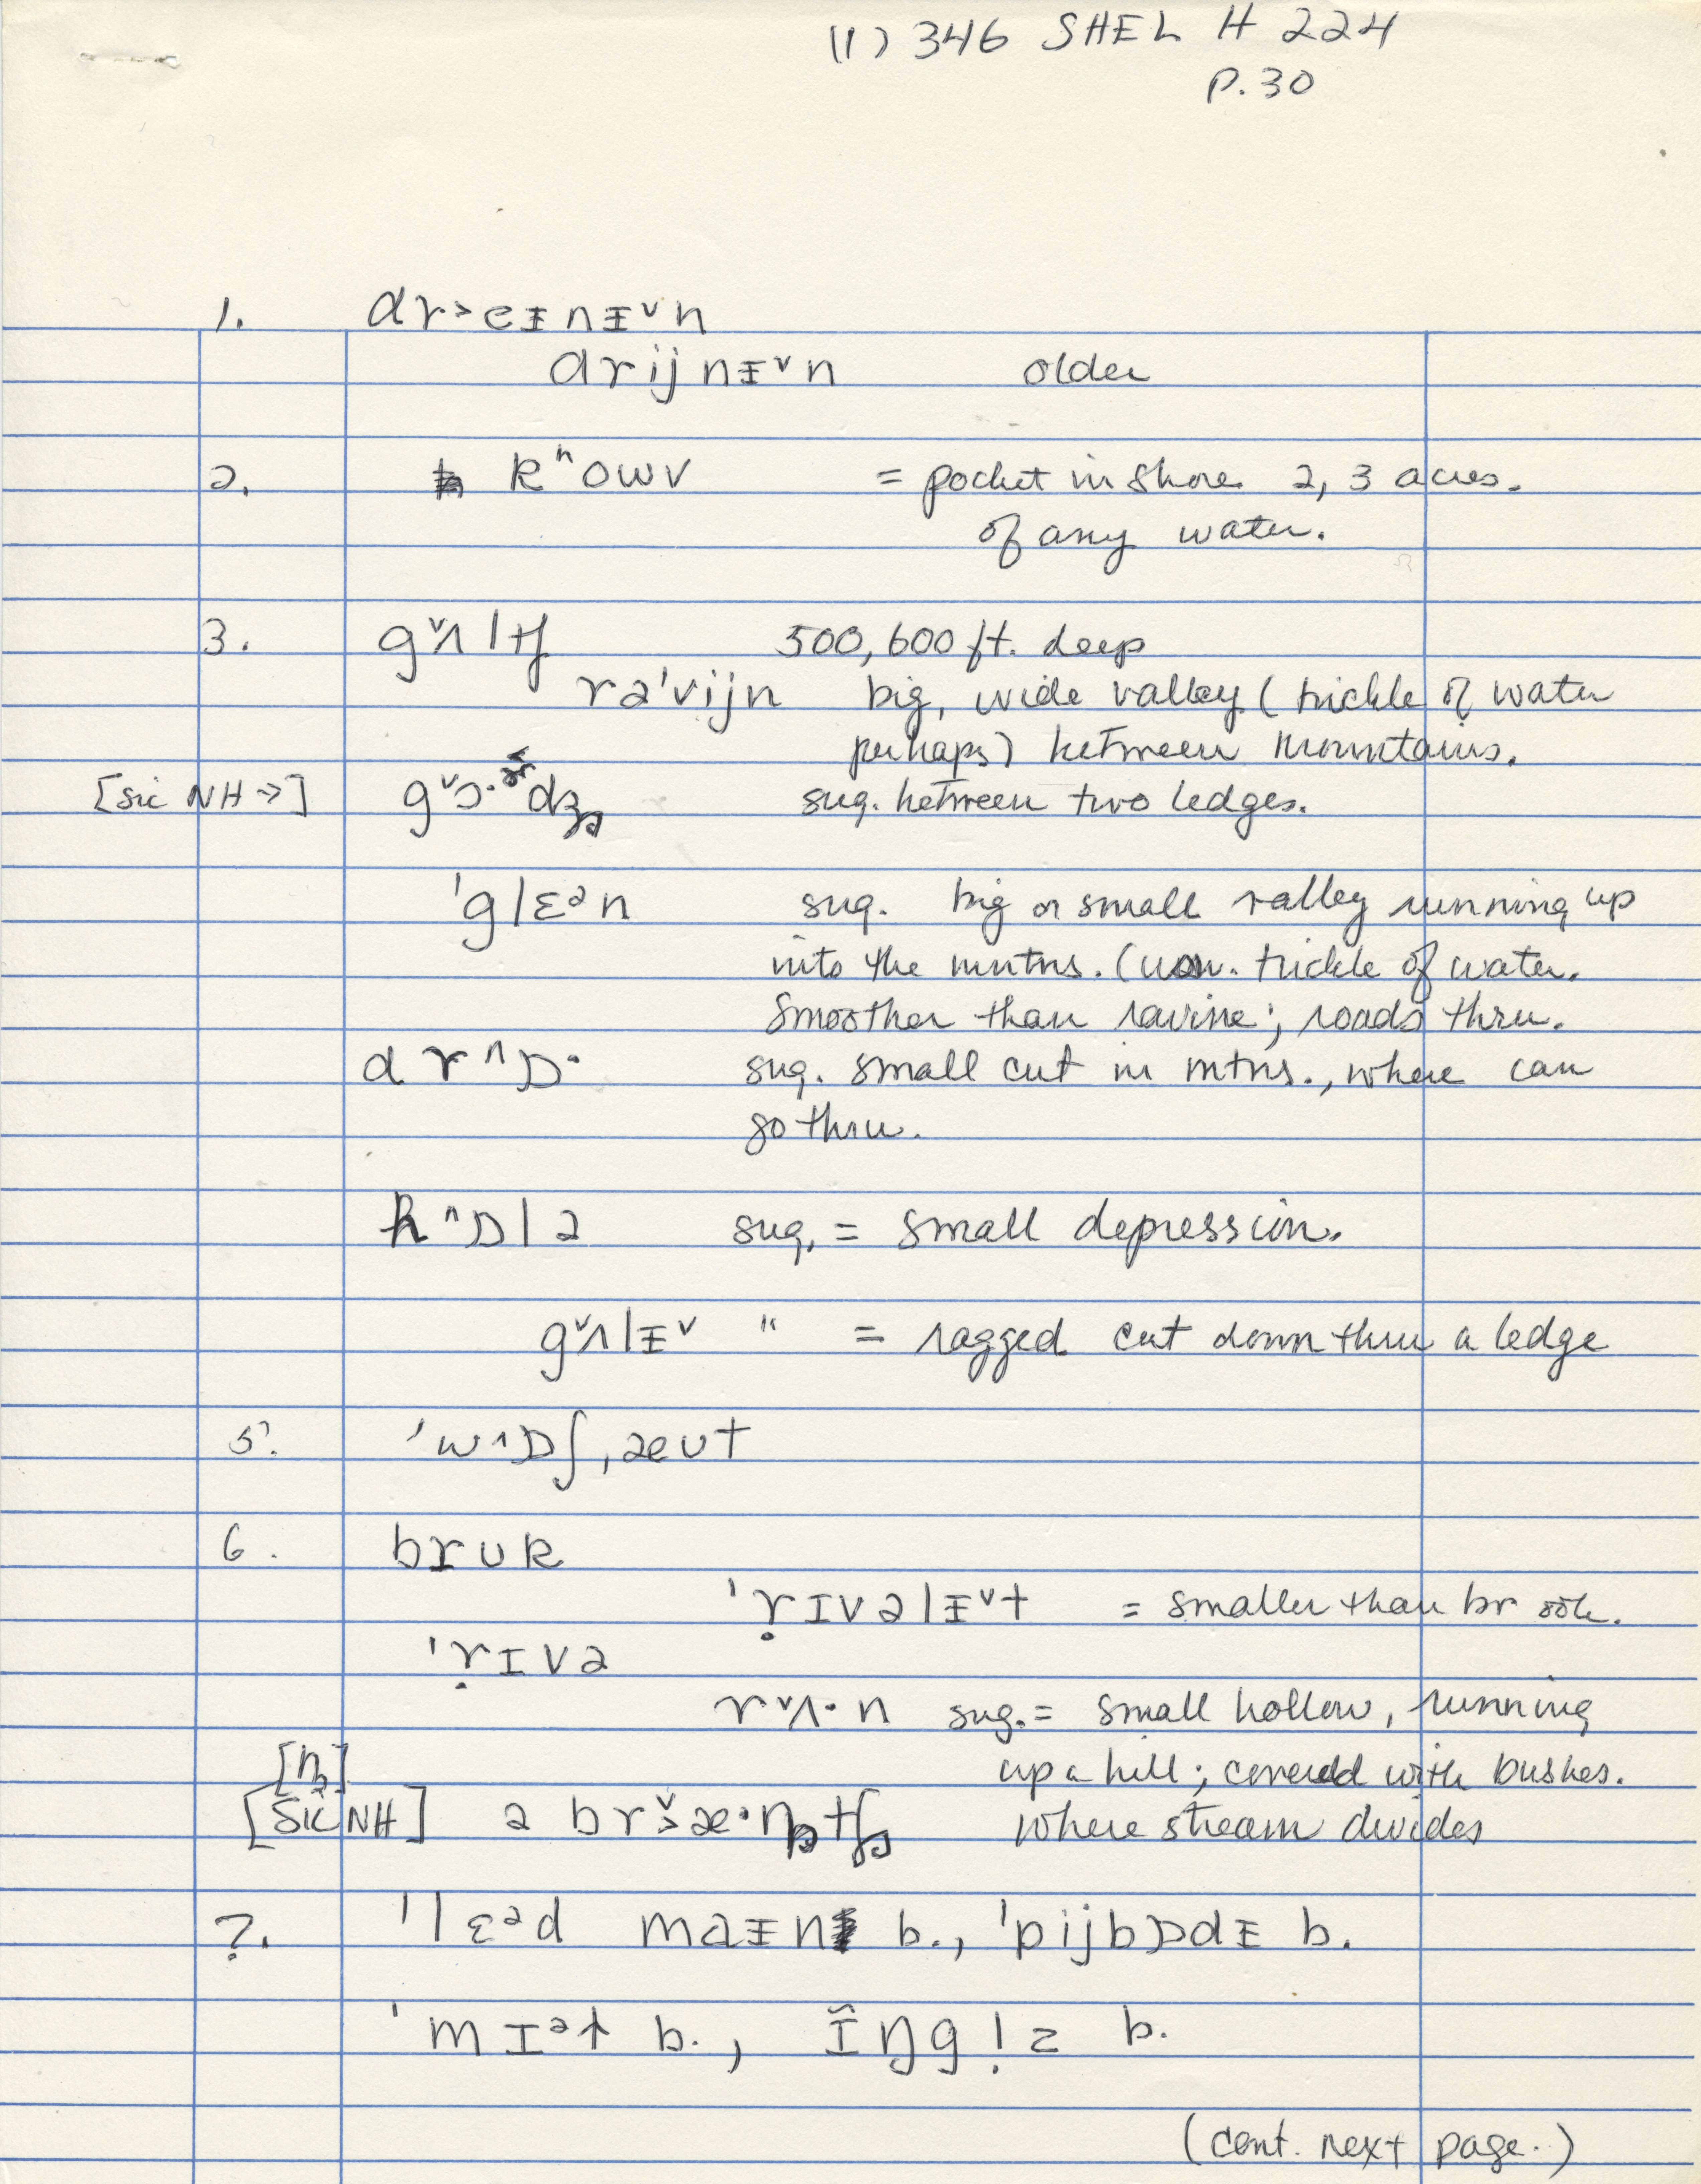 (1) 346 SHEL H 224
P. 30
1. dr˃eɪnɪ˅n
drijnɪ˅n older
2. kʰowv = pocket in shore 2, 3 acres.
of any water.
3. g˅ʌltʃ 500, 600 ft. deep
rə'vijn big, wide valley (trickle of water
perhaps) between mountains.
[sic NH →] sug. between two ledges.
'glɛᵊn sug. big or small valley running up
into the mntns. (usu. trickle of water.
Smoother than ravine; roads thru.
dr^ɒ· sug. small cut in mtns., where can
go thru.
h^ɒlə sug. = small depression.
g˅ʌlɪ˅ " = ragged cut down thru a ledge
5. 'w^ɒʃˌæut
6. brʊk
'ṛɪvəlɪ˅t = smaller than brook.
'ṛɪvə
r˅ʌ·n sug. = small hollow, running
[n̥] up a hill; covered with bushes.
[Sic NH] ə br˃˅æ·n̥tʃ where stream divides
7. 'lɛᵊd maɪn b., 'pijbɒdɪ b.
'mɪᵊt b., ɪ̃ŋgl̩z b.
(cont. next page.)